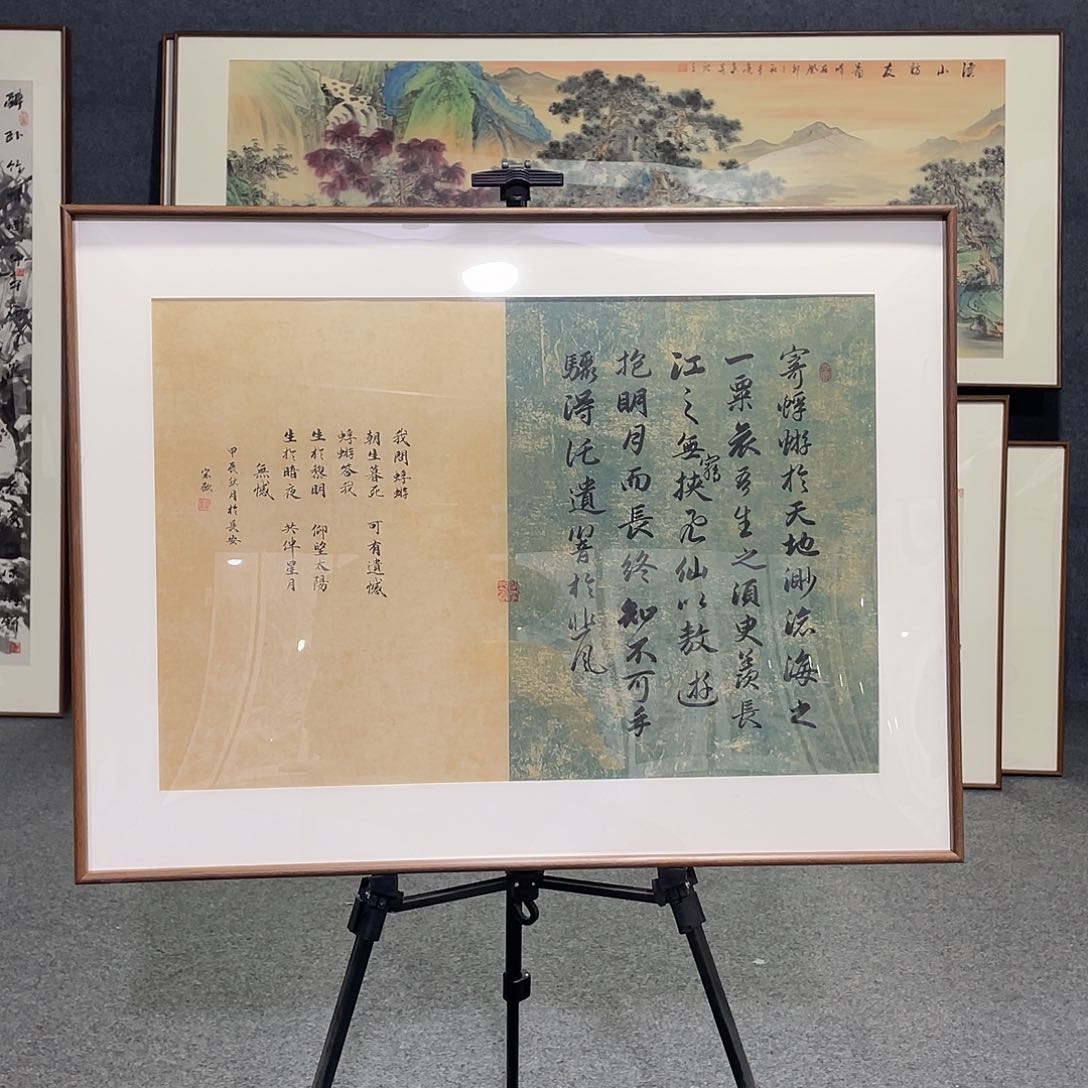 溪山訪友
寄蜉蝣於天地渺滄海之
一粟哀吾生之須臾羨長
江之無窮挾飛仙以敖遊
抱明月而長終知不可乎
驟得托遺響於悲風
我問蜉蝣
朝生暮死 可有遺憾
蜉蝣答我
生於黎明 仰望太陽
生於暗夜 共伴星月
無憾
甲辰秋月於長安